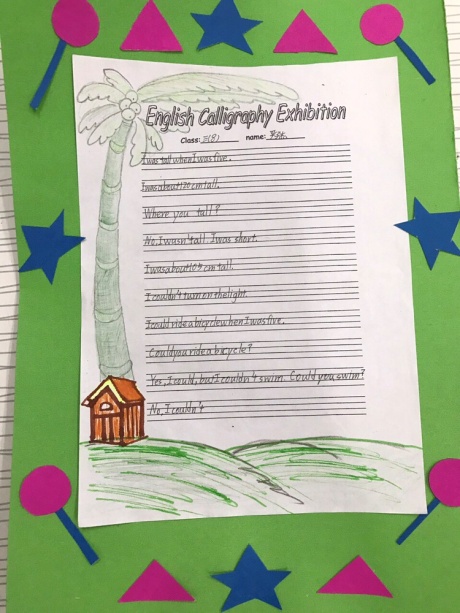 English Calligraphy Exhibition
Class: 三(8) name:
I was tall when I was five.
I was about 120 cm tall.
Where you tall?
No, I wasn't tall. I was short.
I was about 105 cm tall.
I couldn't turn on the light.
I could ride a bicycle when I was five.
Could you ride a bicycle?
Yes, I could, but I couldn't swim. Could you swim?
No, I couldn't